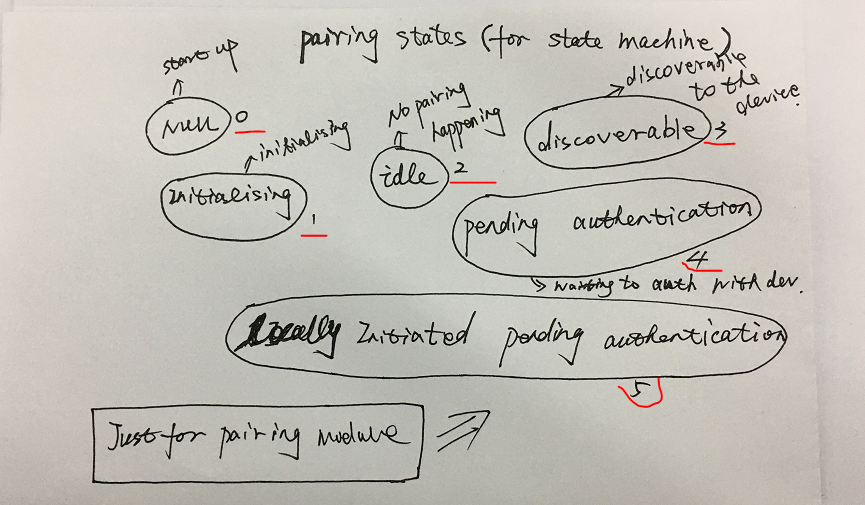 pairing states (for state machine)
start up
Null 0
initialising
Initialising 1
No pairing
happening
idle 2
discoverable
to the
device.
discoverable 3
pending authentication
4
waiting to auth with dev.
Locally Initiated pending authentication
5
Just for pairing module